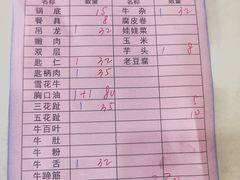 名称 数量 名称 数量
锅底 15 牛杂 1 32
餐具 8 腐皮卷
吊龙 1 32 娃娃菜
嫩肉 玉米
双层 芋头 1 8
匙仁 1 32 老豆腐
匙柄肉 1 35
雪花牛
胸口油 1+1 80
三花趾 1 35 5
五花趾 10
牛百叶
牛肚
牛粉
牛舌 1 32
牛蹄筋